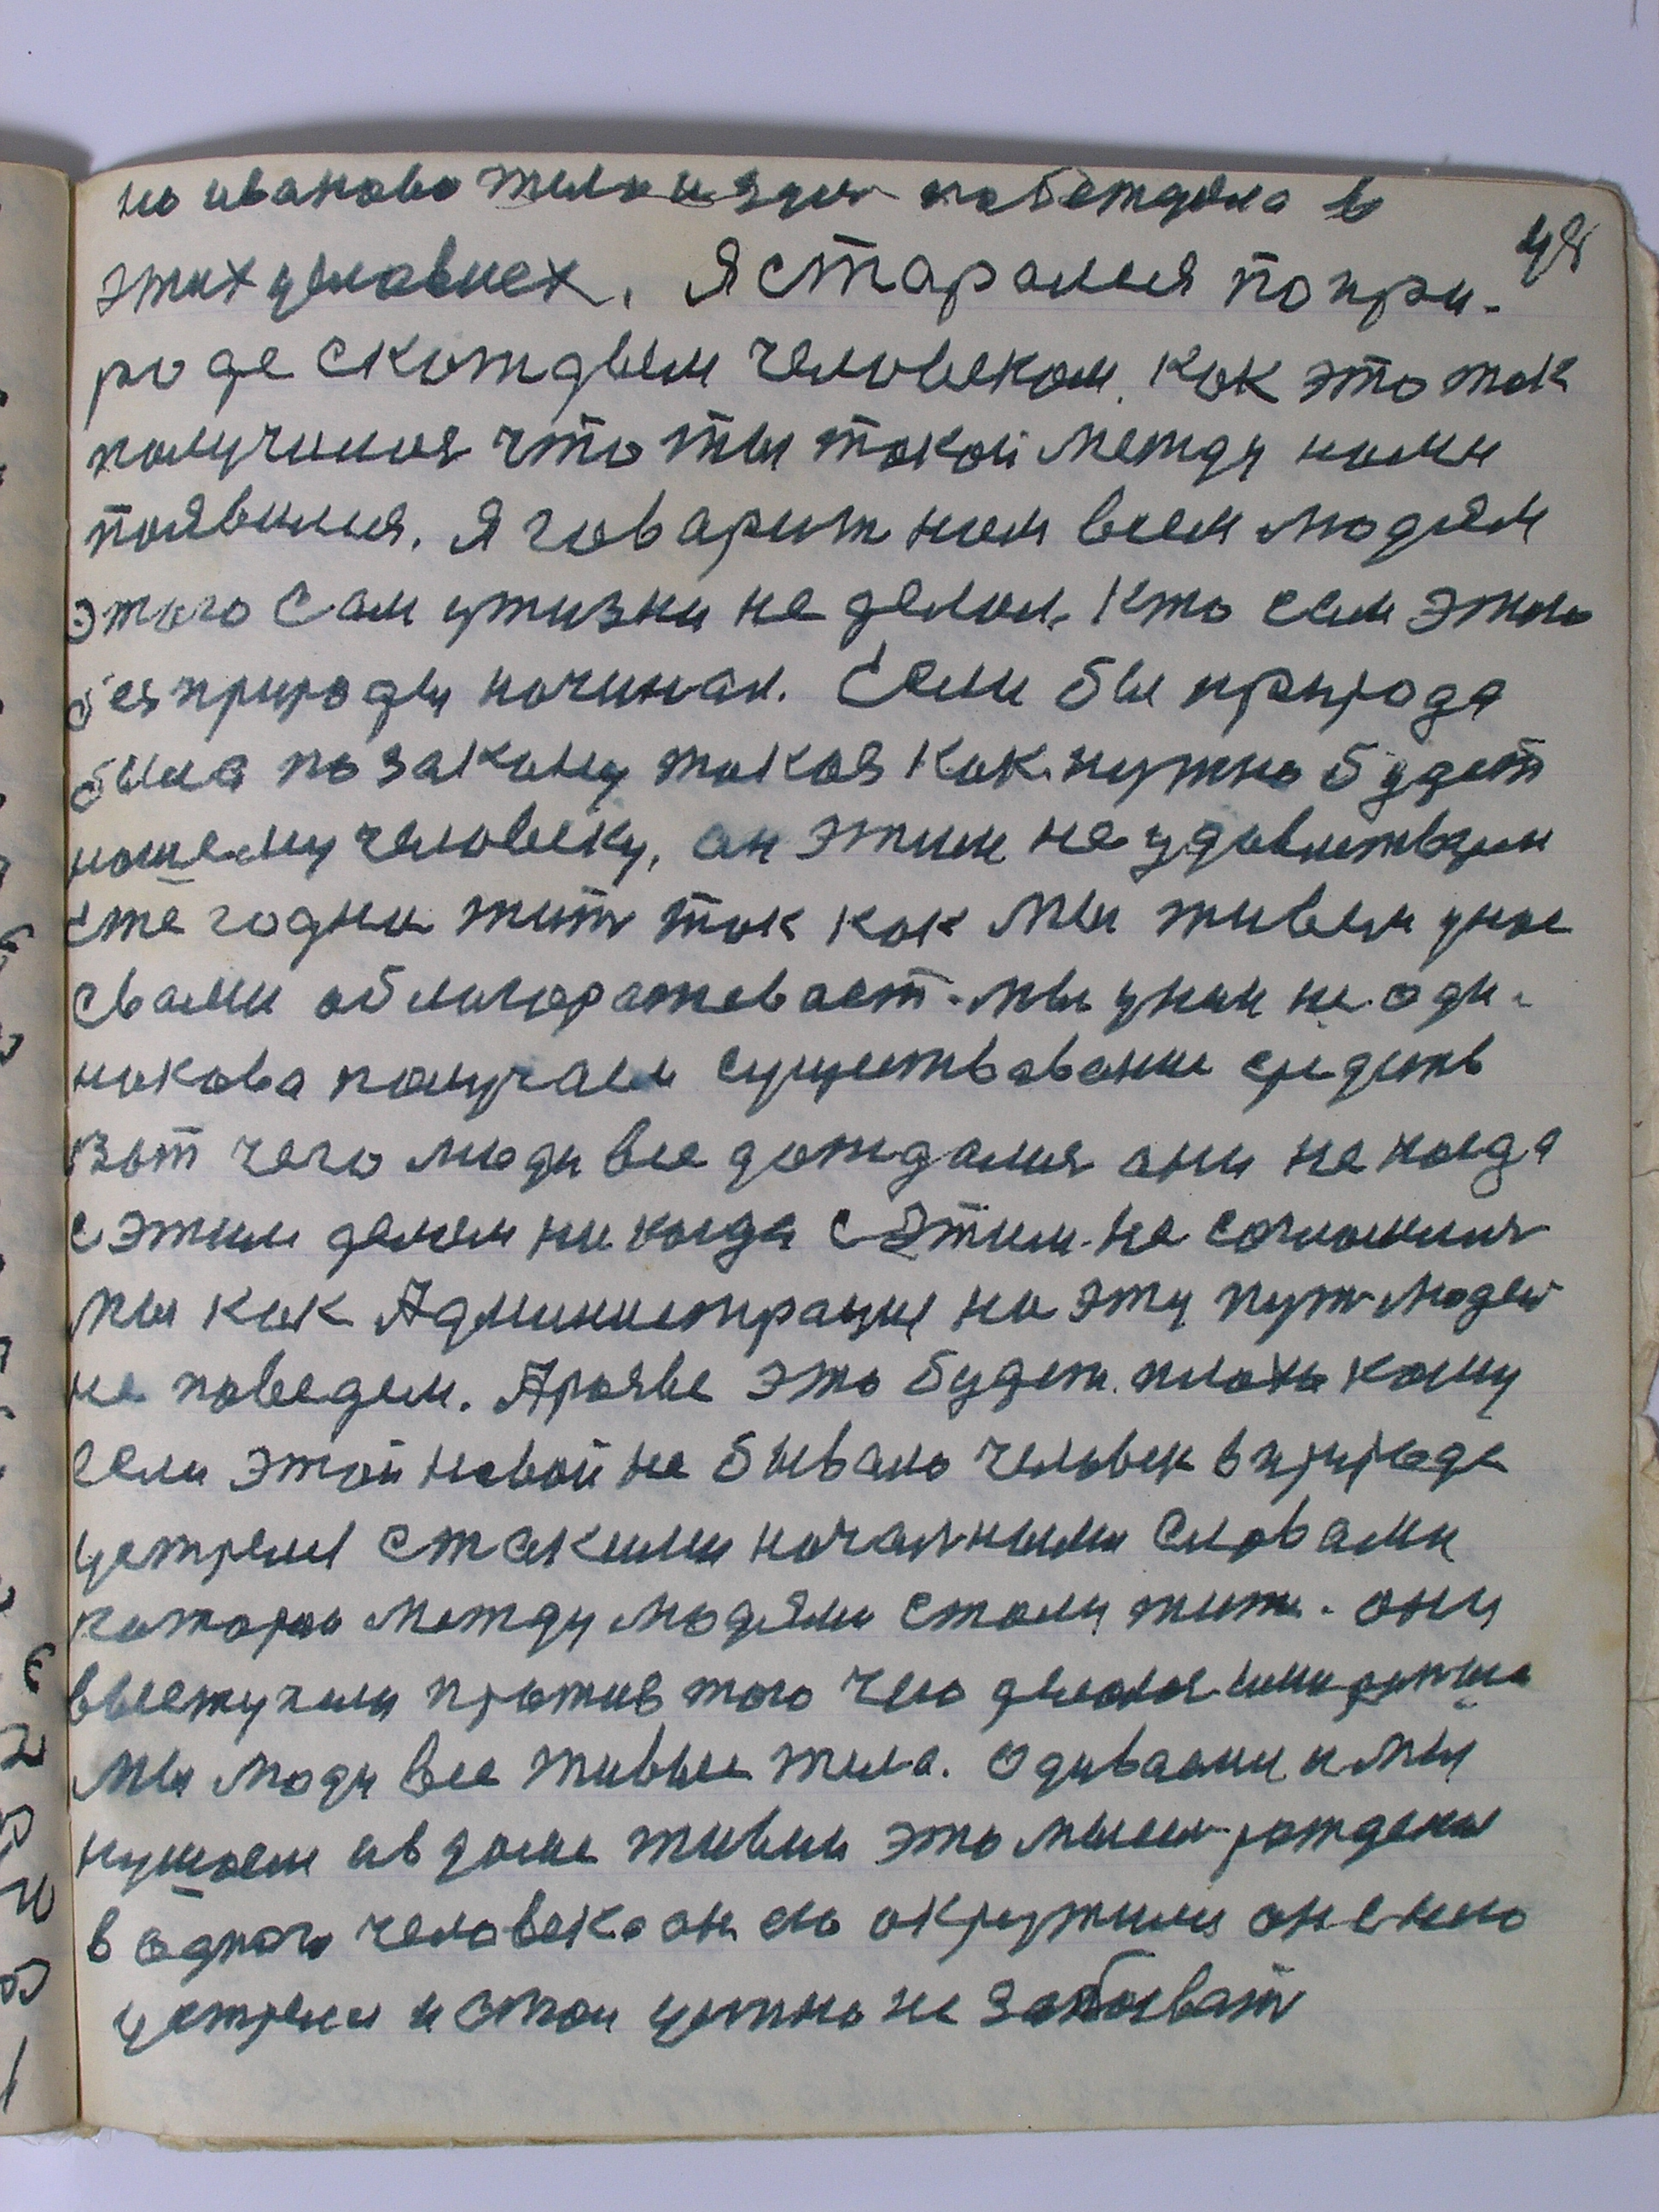 но иваново тело и здесь побеждяла в
48
этих условиех. Я старался по при-
роде с каждым человеком. Как это так
получился что ты такой между нами
появился. Я говарит нам всем людям
этого сам у жизни не делал. Кто сам этого
без природы начинал. Если бы природа
была по закону такая как нужно будет
нашему человеку, он этим не удовлетворен
жить так как мы живем у нас
с вами облагораживает. мы у ней не оди-
накова получаем существование средств
Вот чего люди все дождался они не когда
с этим делом ни когда с этим не согласился
мы как Администрация на эту путь людей
не поведем. А разве это будет плохо кому
если этой новой не бывало человек в природе
устрели с такими начальными словами
которы между людями стали жить. они
выступали против того чего делалося
Мы люди все живые тела. Одиваемси и мы
кушаем и в доме живем это мысль рождена
в одного человека он ею окружился он с нею
устрели и стои устно не забывать